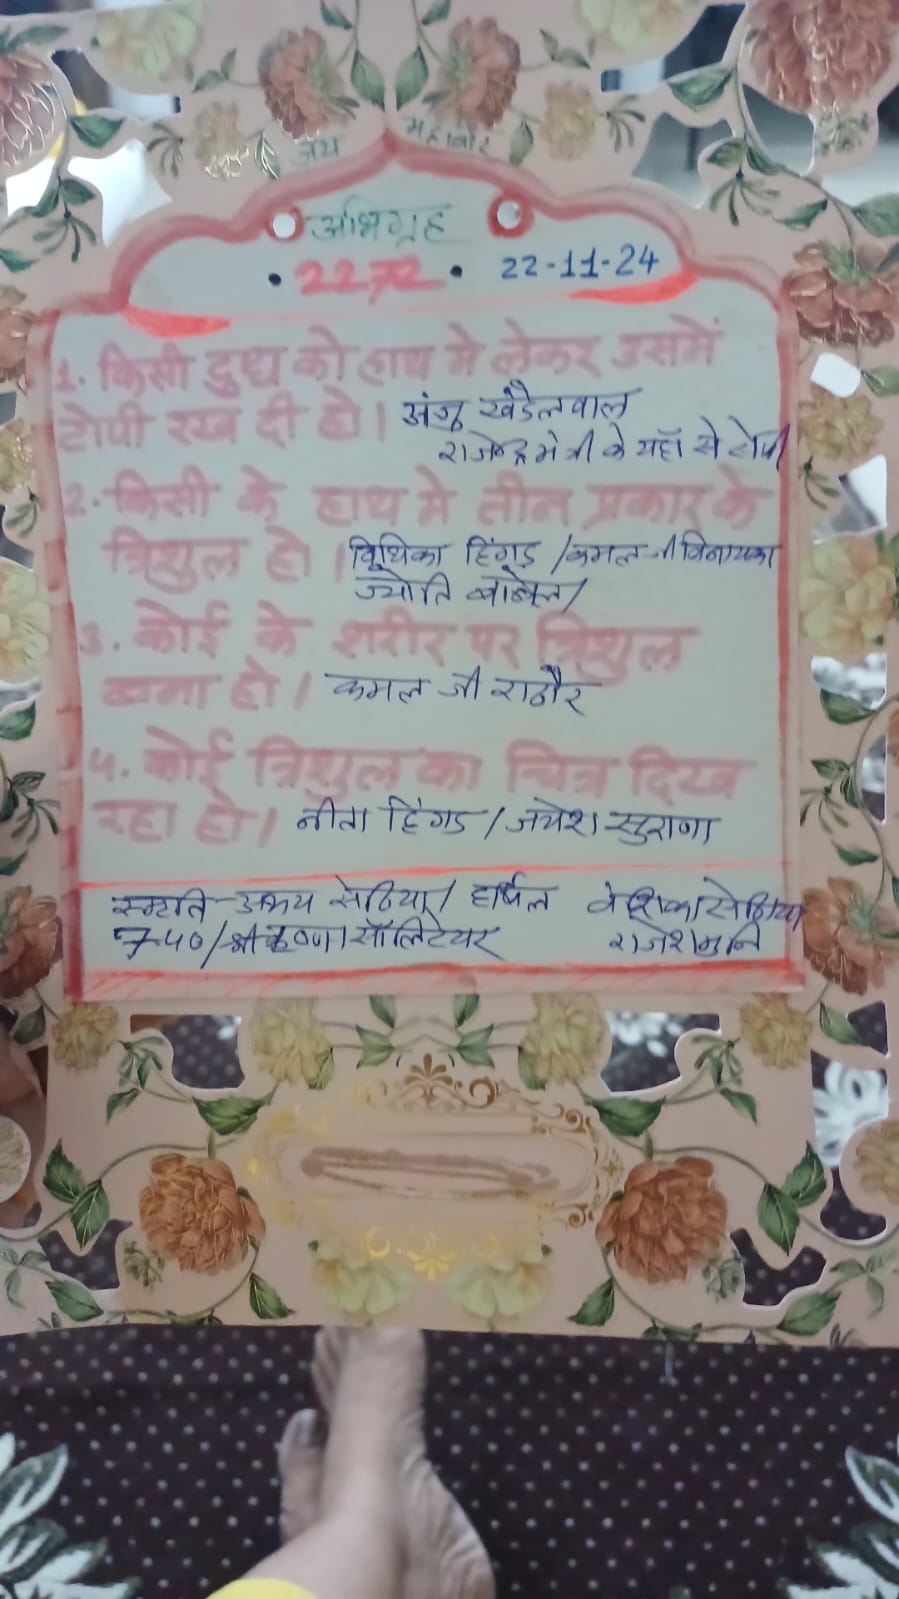 जय महावीर
अभिग्रह
• 2272 • 22-11-24
1. किसी दुध को हाथ मे लेकर उसमें
टोपी रख दी हो। अंजु खंडैलवाल
राजेन्द्र मेत्री के यहाँ से टोपी
2. किसी के हाथ मे तीन प्रकार के
त्रिशुल हो। विथिका हिंगड़ / कमल जी विनायका
ज्योति बाबेल /
3. कोई के शरीर पर त्रिशुल
बना हो। कमल जी राठौर
4. कोई त्रिशुल का चित्र दिख
रहा हो। नीता हिंगड / जयेश सुराणा
स्मृति-अभय सेठिया / हर्षिल सेठिया
740 / श्री कृष्णा सॉलिटेयर राजेश मुनि